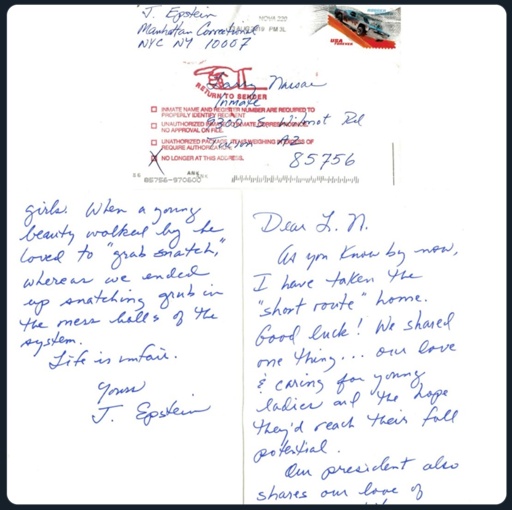 J. Epstein
Manhattan Correctional
NYC NY 10007
NOVA 220
2019 PM 3L
USA
FOREVER
Larry Nassar
Inmate
9300 S. Wilmot Rd
Tucson AZ
85756
RETURN TO SENDER
INMATE NAME AND REGISTER NUMBER ARE REQUIRED TO
PROPERLY IDENTIFY RECIPIENT
UNAUTHORIZED
NO APPROVAL ON FILE.
UNAUTHORIZED PACKAGE. ITEMS WEIGHING OF
REQUIRE
NO LONGER AT THIS ADDRESS.
ANK
85756-970600
girls. When a young
beauty walked by he
loved to "grab snatch,"
whereas we ended
up snatching grub in
the mess halls of the
system.
Life is unfair.
Yours
J. Epstein
Dear L. N.
As you know by now,
I have taken the
"short route" home.
Good luck! We shared
one thing... our love
& caring for young
ladies and the hope
they'd reach their full
potential.
Our president also
shares our love of